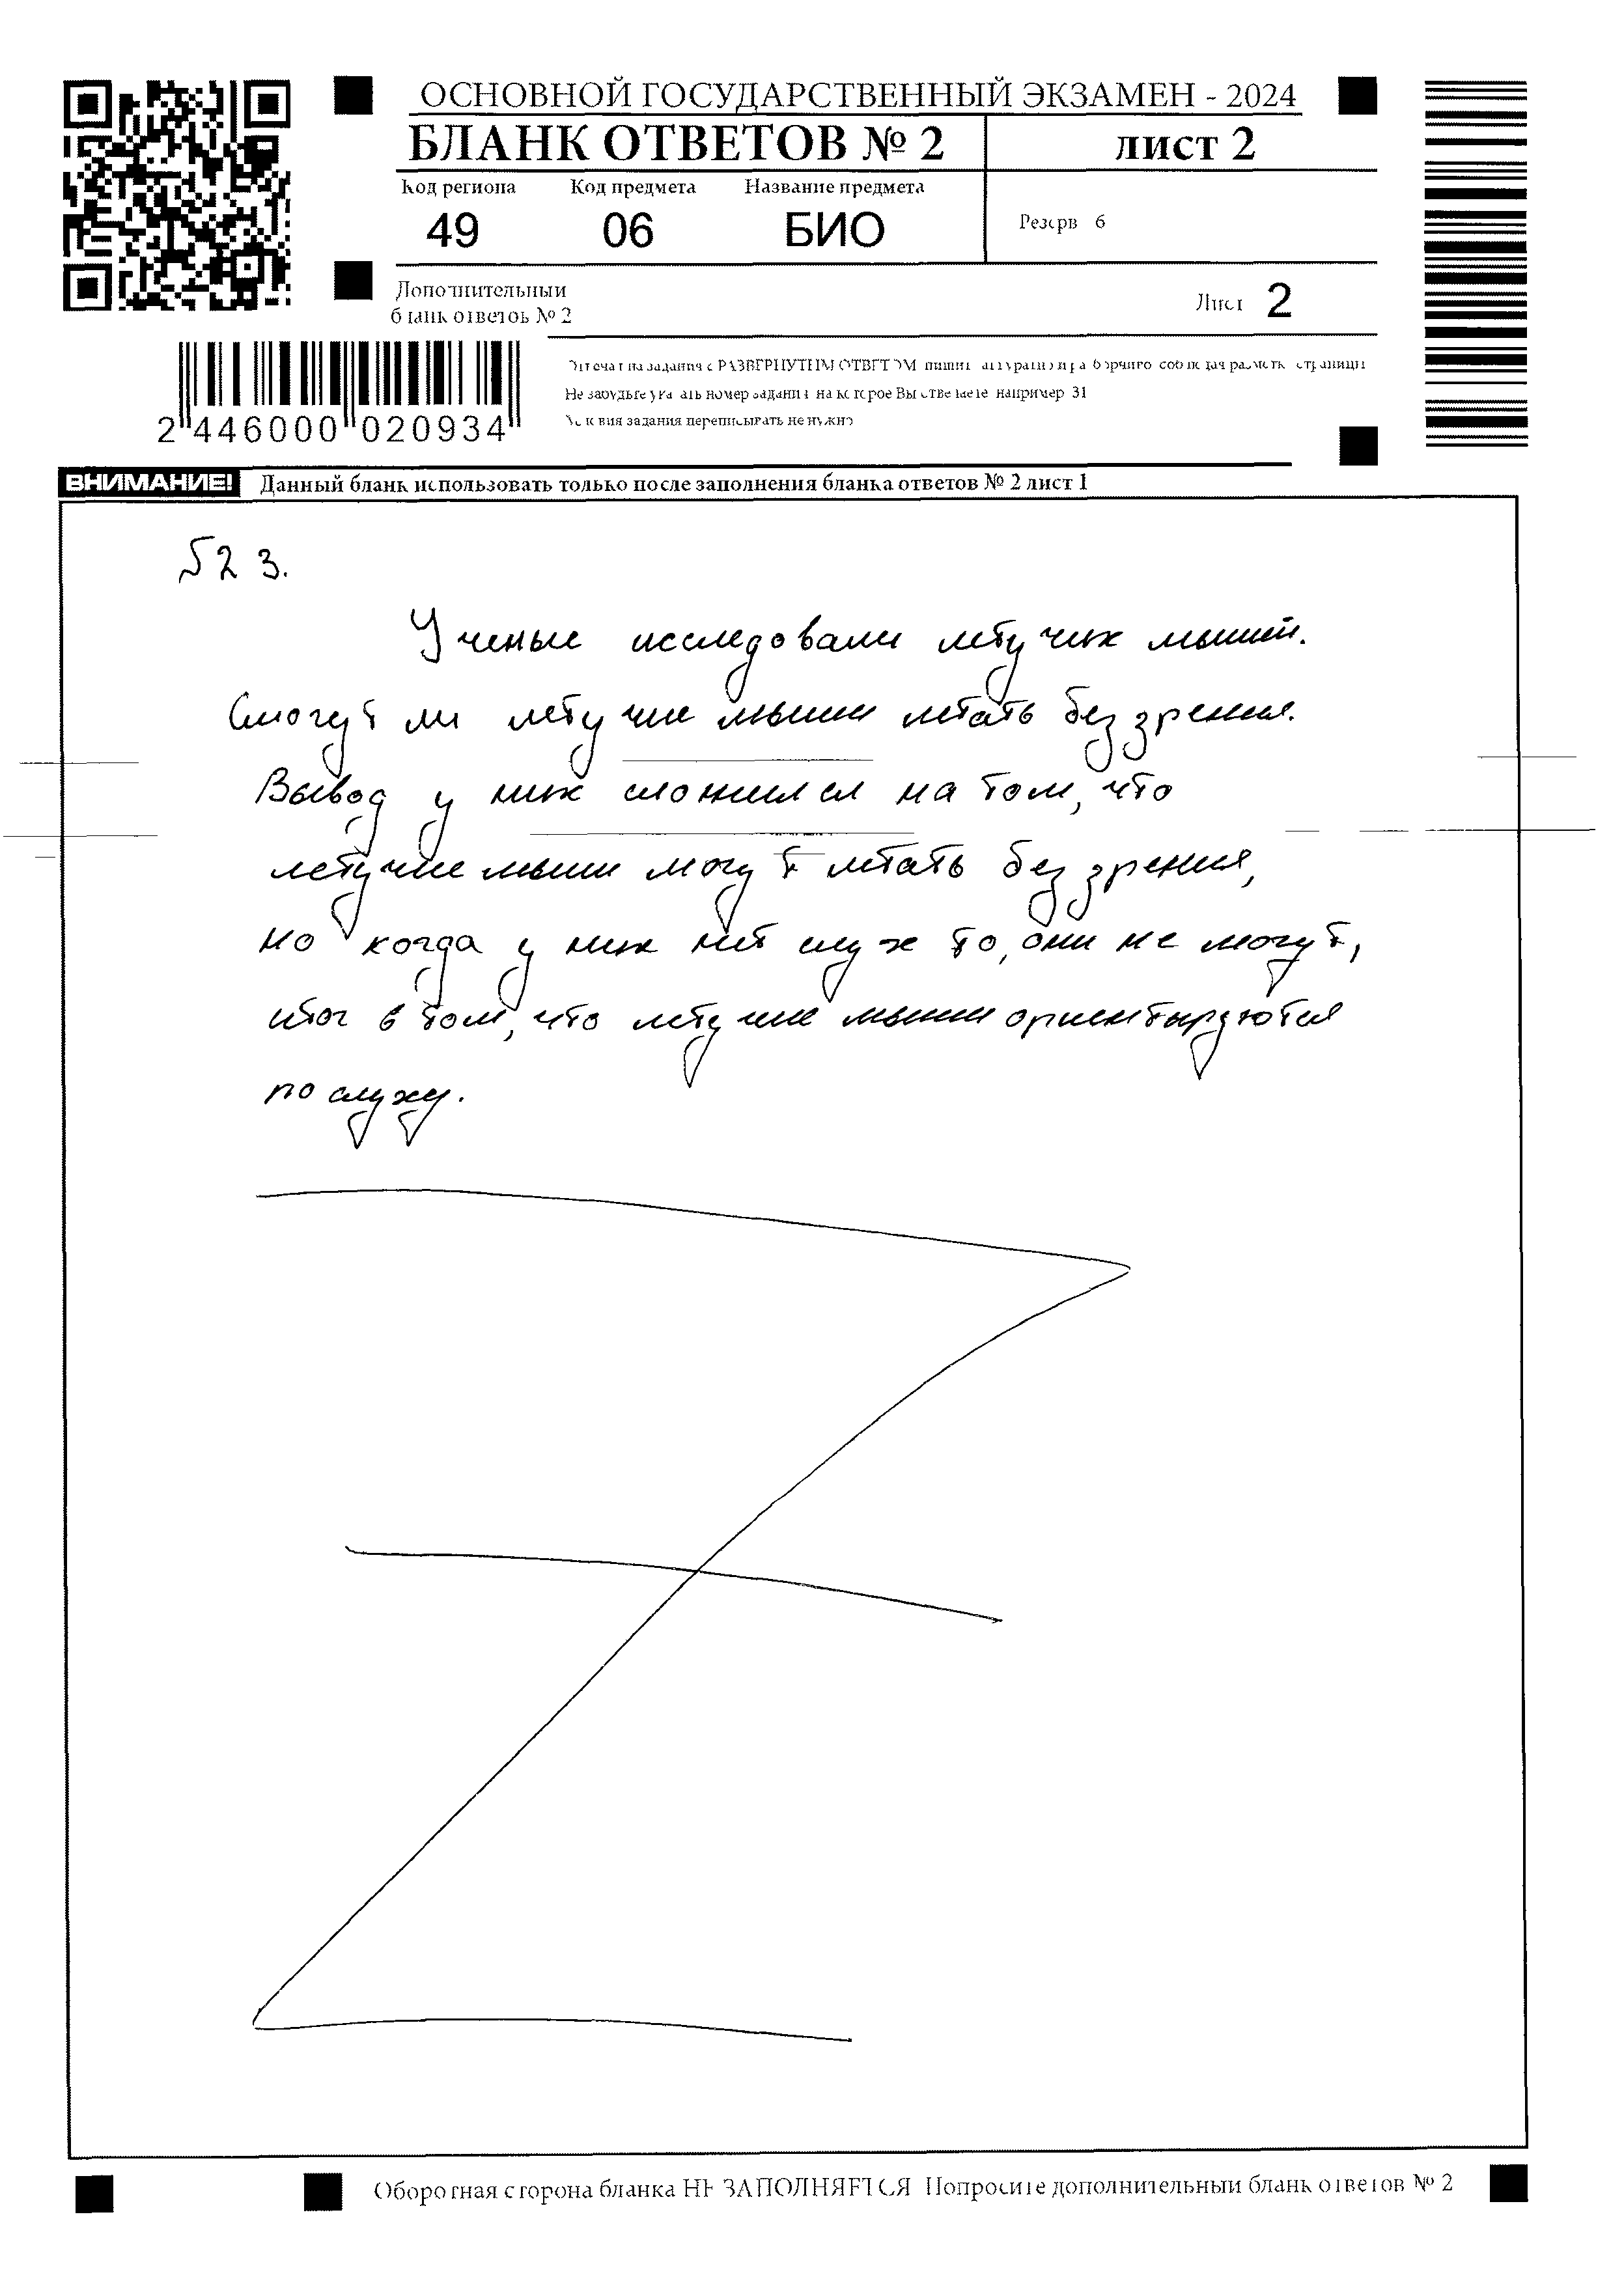 ОСНОВНОЙ ГОСУДАРСТВЕННЫЙ ЭКЗАМЕН - 2024
БЛАНК ОТВЕТОВ № 2 лист 2
Код региона Код предмета Название предмета
49 06 БИО Резерв 6
Дополнительный
бланк ответов № 2
Лист 2
2 446000 020934
Не забудьте номер задания на которое Вы например 31
Условия задания переписывать не нужно
ВНИМАНИЕ! Данный бланк использовать только после заполнения бланка ответов № 2 лист 1
№23.
Ученые исследовали летучих мышей.
Смогут ли летучие мыши летать без зрения.
Вывод у них сложился на том, что
летучие мыши могут летать без зрения,
но когда у них нет слух то, они не могут,
итог в том, что летучие мыши ориентыруются
по слуху.
Оборотная сторона бланка НЕ ЗАПОЛНЯЕТСЯ Попросите дополнительный бланк ответов № 2